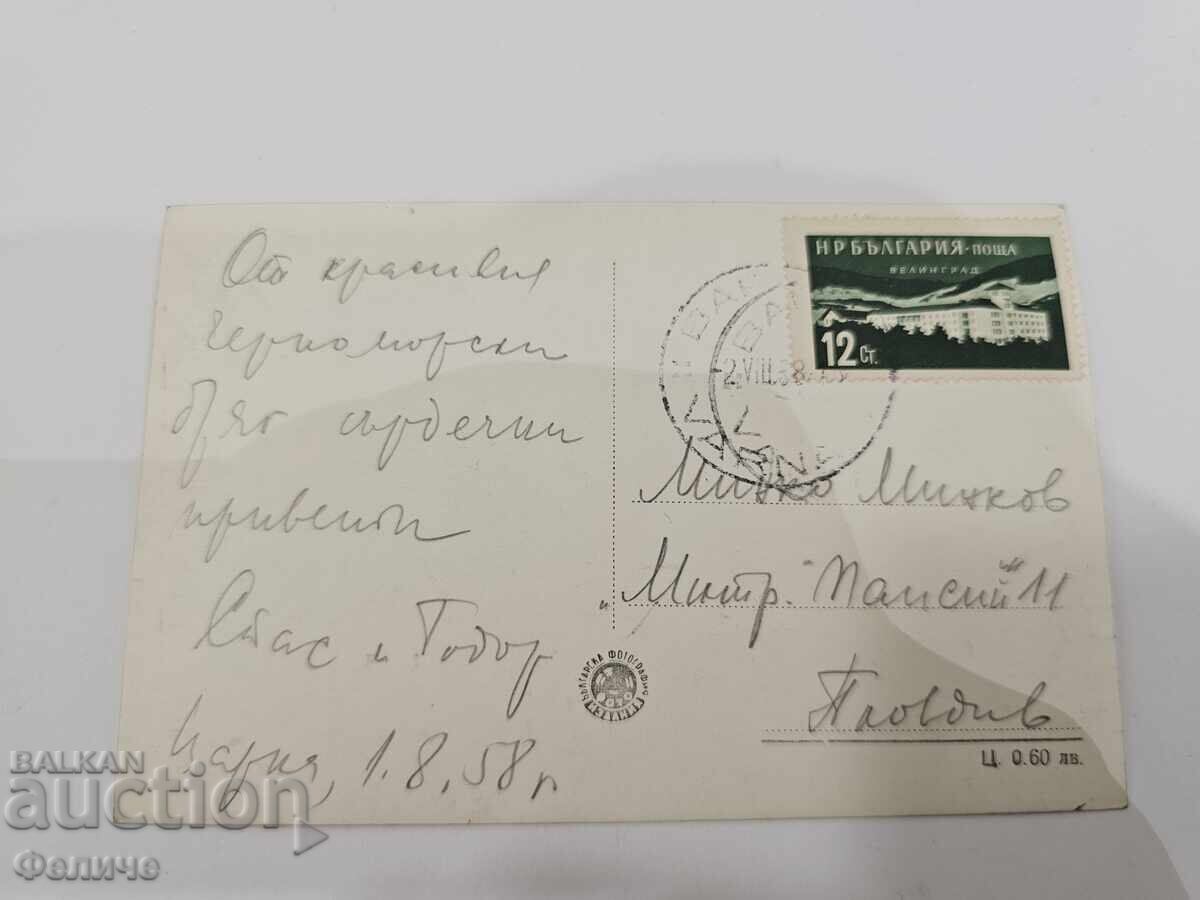 От красивия
черноморски
бряг сърдечни
привети
Стас и Тодор
Варна, 1.8.58 г
НРБЪЛГАРИЯ·ПОЩА
ВЕЛИНГРАД
12 Ст.
2.VIII.58
Минко Минков
Митр. "Паисий" 11
Пловдив
БЪЛГАРСКА ФОТОГРАФИЯ
Ц. 0.60 лв.
BALKAN
auction
Феличе